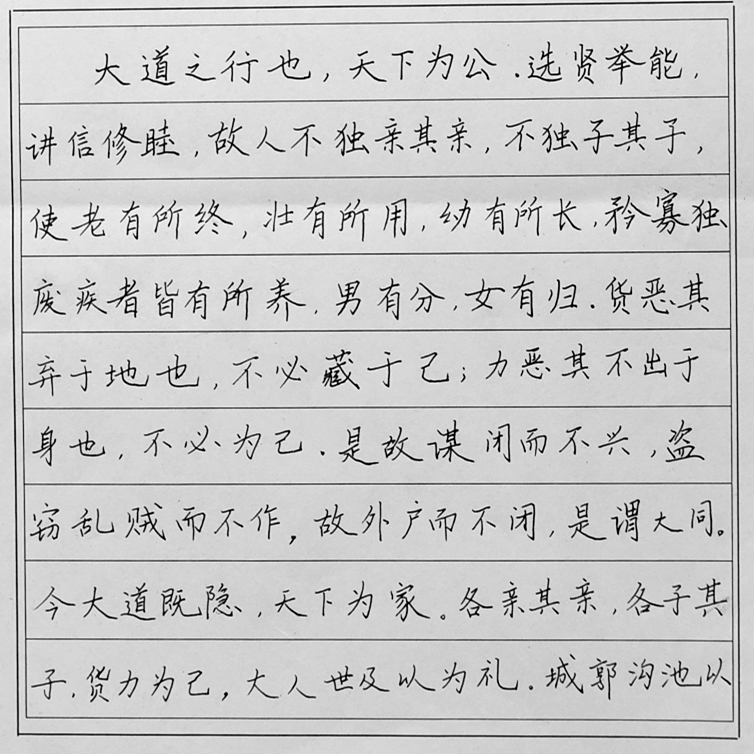 大道之行也，天下为公．选贤举能，
讲信修睦，故人不独亲其亲，不独子其子，
使老有所终，壮有所用，幼有所长，矜寡独
废疾者皆有所养，男有分，女有归．货恶其
弃于地也，不必藏于己；力恶其不出于
身也，不必为己．是故谋闭而不兴，盗
窃乱贼而不作，故外户而不闭，是谓大同。
今大道既隐，天下为家。各亲其亲，各子其
子，货力为己，大人世及以为礼．城郭沟池以